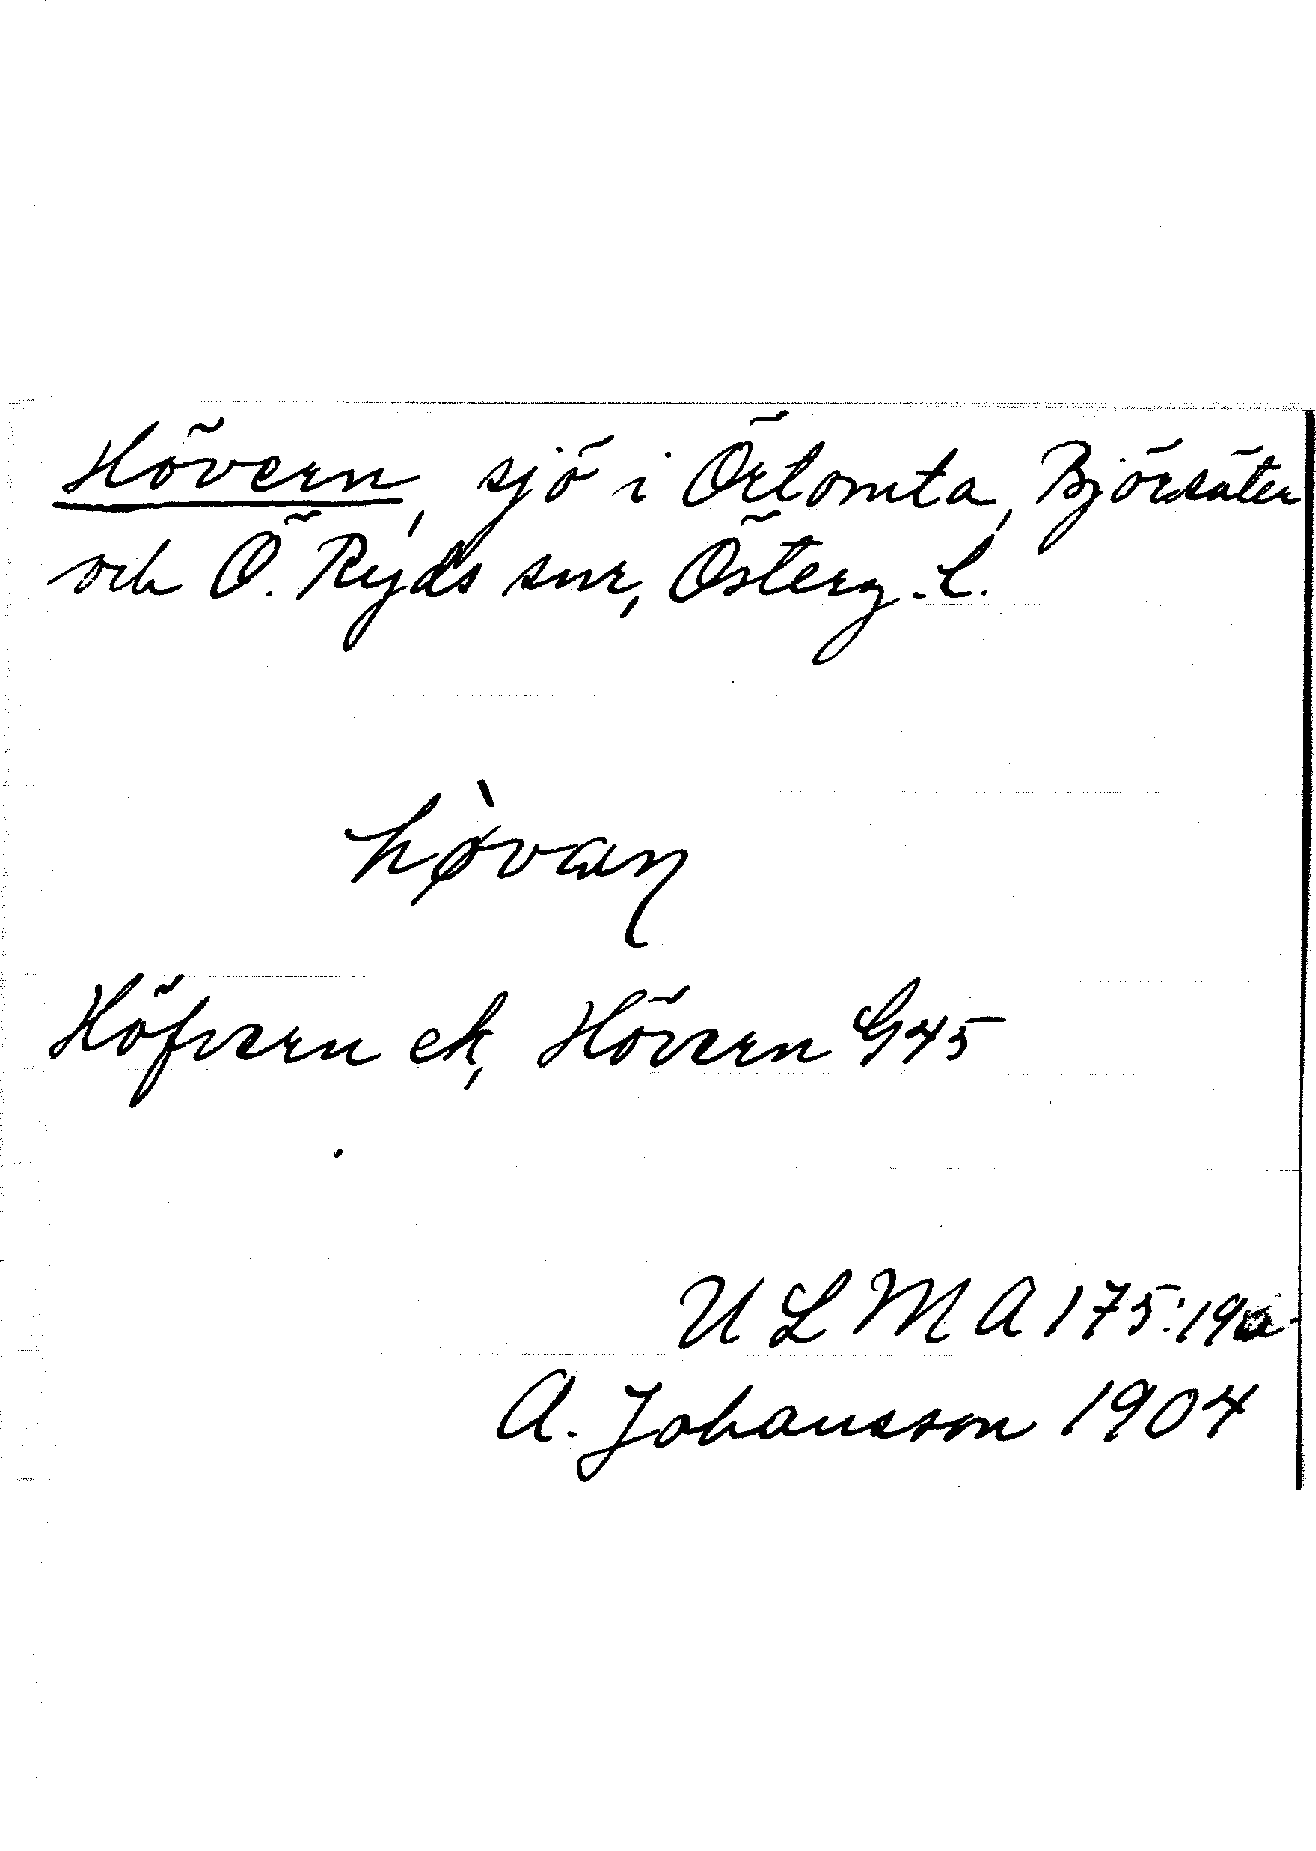 Hövern, sjö i Örtomta, Björsäter
och Ö. Ryds snr, Österg.l.
hø̀vaɳ
Höfvern ek, Hövern G45
ULMA 175:19a
A. Johansson 1904